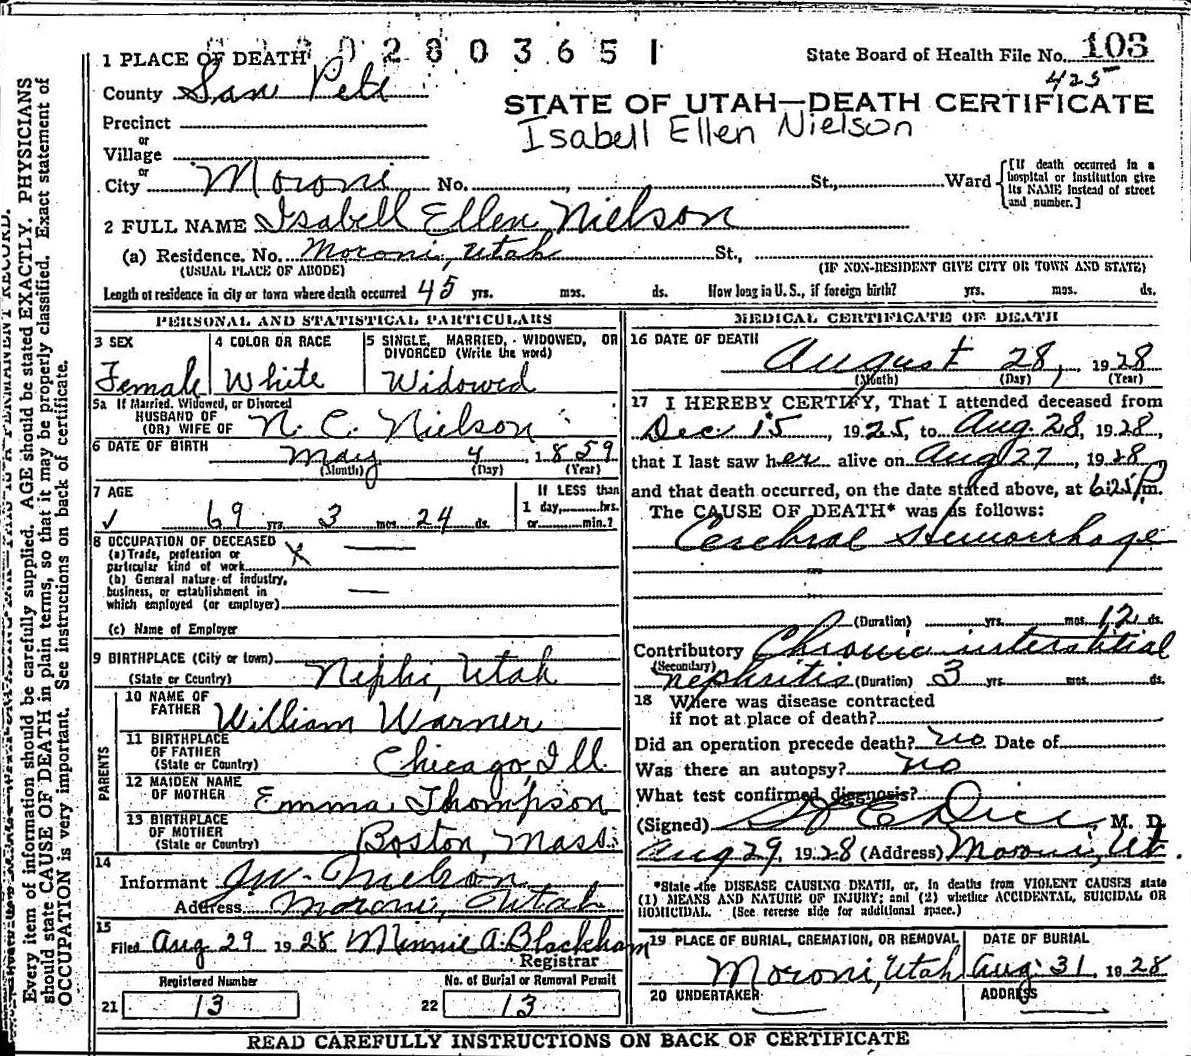 2802803651
State Board of Health File No. 103
425
1 PLACE OF DEATH
County San Pete
STATE OF UTAH—DEATH CERTIFICATE
Isabell Ellen Nielson
Precinct
or
Village
or
City Moroni No. , St., Ward
[If death occurred in a hospital or institution give its NAME instead of street and number.]
2 FULL NAME Isabell Ellen Nielson
(a) Residence. No. Moroni, Utah St.,
(USUAL PLACE OF ABODE) (IF NON-RESIDENT GIVE CITY OR TOWN AND STATE)
Length of residence in city or town where death occurred 45 yrs. mos. ds. How long in U. S., if foreign birth? yrs. mos. ds.
PERSONAL AND STATISTICAL PARTICULARS
3 SEX
Female
4 COLOR OR RACE
White
5 SINGLE, MARRIED, WIDOWED, OR DIVORCED (Write the word)
Widowed
5a If Married, Widowed, or Divorced
HUSBAND OF
(OR) WIFE OF N. C. Nielson
6 DATE OF BIRTH May 4, 1859
(Month) (Day) (Year)
7 AGE
√ 69 yrs. 3 mos. 24 ds.
If LESS than
1 day, hrs.
or min.?
8 OCCUPATION OF DECEASED
(a) Trade, profession or
particular kind of work X —
(b) General nature of industry,
business, or establishment in —
which employed (or employer)
(c) Name of Employer
9 BIRTHPLACE (City or town)
(State or Country) Nephi, Utah
PARENTS
10 NAME OF
FATHER William Warner
11 BIRTHPLACE
OF FATHER
(State or Country) Chicago, Ill.
12 MAIDEN NAME
OF MOTHER Emma Thompson
13 BIRTHPLACE
OF MOTHER
(State or Country) Boston, Mass.
14
Informant J W. Nielson
Address Moroni, Utah
15
Filed Aug 29 1928 Minnie A. Blackham
Registrar
Registered Number
21 13
No. of Burial or Removal Permit
22 13
MEDICAL CERTIFICATE OF DEATH
16 DATE OF DEATH
August 28, 1928
(Month) (Day) (Year)
17 I HEREBY CERTIFY, That I attended deceased from
Dec. 15, 1925, to Aug. 28, 1928,
that I last saw her alive on Aug 27, 1928,
and that death occurred, on the date stated above, at 6:25 P. m.
The CAUSE OF DEATH* was as follows:
Cerebral Hemorrhage
(Duration) yrs. mos. 12 ds.
Contributory Chronic interstitial
(Secondary)
nephritis (Duration) 3 yrs. ds.
18 Where was disease contracted
if not at place of death?
Did an operation precede death? no Date of
Was there an autopsy? no
What test confirmed diagnosis?
(Signed) M. D.
Aug 29, 1928 (Address) Moroni, Ut.
*State the DISEASE CAUSING DEATH, or, in deaths from VIOLENT CAUSES state
(1) MEANS AND NATURE OF INJURY; and (2) whether ACCIDENTAL, SUICIDAL OR
HOMICIDAL. (See reverse side for additional space.)
19 PLACE OF BURIAL, CREMATION, OR REMOVAL
Moroni, Utah
DATE OF BURIAL
Aug. 31, 1928
20 UNDERTAKER
ADDRESS
READ CAREFULLY INSTRUCTIONS ON BACK OF CERTIFICATE
Every item of information should be carefully supplied. AGE should be stated EXACTLY. PHYSICIANS
should state CAUSE OF DEATH in plain terms, so that it may be properly classified. Exact statement of
OCCUPATION is very important. See instructions on back of certificate.